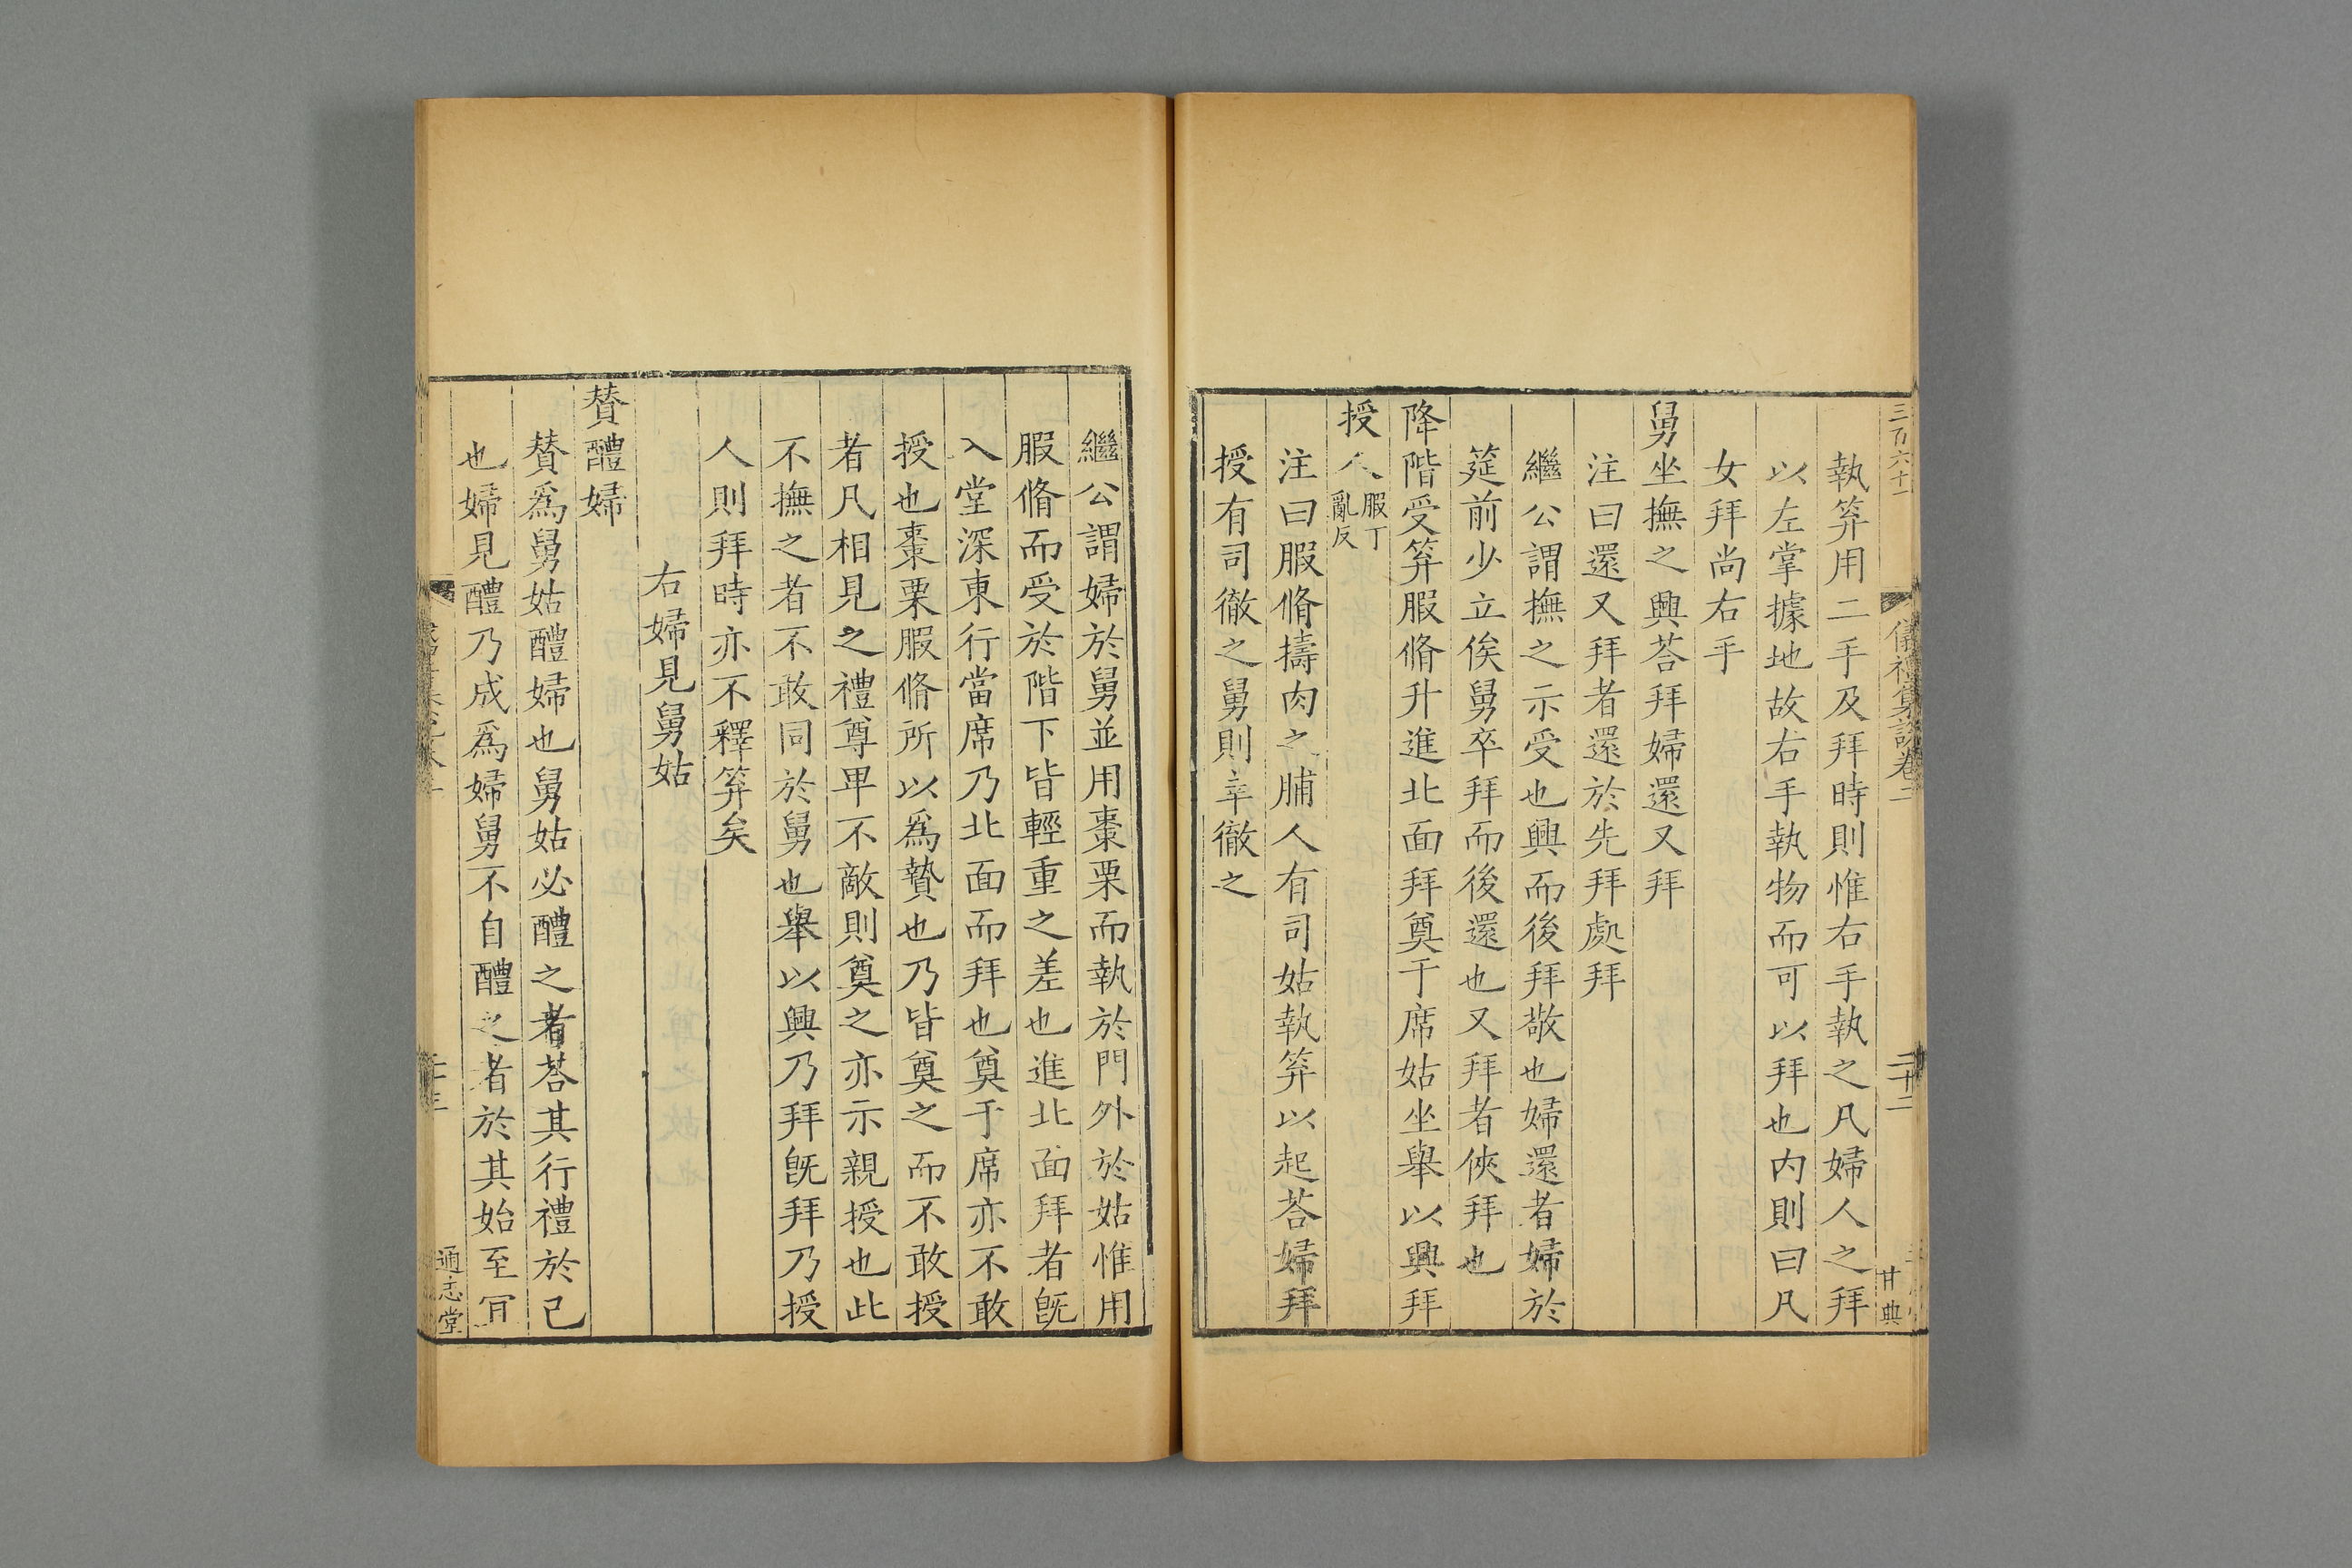 三百六十一
儀禮集說卷二
二十二
甘典
執笲用二手及拜時則惟右手執之凡婦人之拜
以左掌據地故右手執物而可以拜也内則曰凡
女拜尚右手
舅坐撫之興荅拜婦還又拜
注曰還又拜者還於先拜處拜
繼公謂撫之示受也興而後拜敬也婦還者婦於
筵前少立俟舅卒拜而後還也又拜者俠拜也
降階受笲腶脩升進北面拜奠于席姑坐舉以興拜
授人腶丁
亂反
注曰腶脩擣肉之脯人有司姑執笲以起荅婦拜
授有司徹之舅則宰徹之
繼公謂婦於舅並用棗栗而執於門外於姑惟用
腶脩而受於階下皆輕重之差也進北面拜者旣
入堂深東行當席乃北面而拜也奠于席亦不敢
授也棗栗腶脩所以爲贄也乃皆奠之而不敢授
者凡相見之禮尊卑不敵則奠之亦示親授也此
不撫之者不敢同於舅也舉以興乃拜旣拜乃授
人則拜時亦不釋笲矣
右婦見舅姑
贊醴婦
贊爲舅姑醴婦也舅姑必醴之者荅其行禮於己
也婦見醴乃成爲婦舅不自醴之者於其始至冝
通志堂